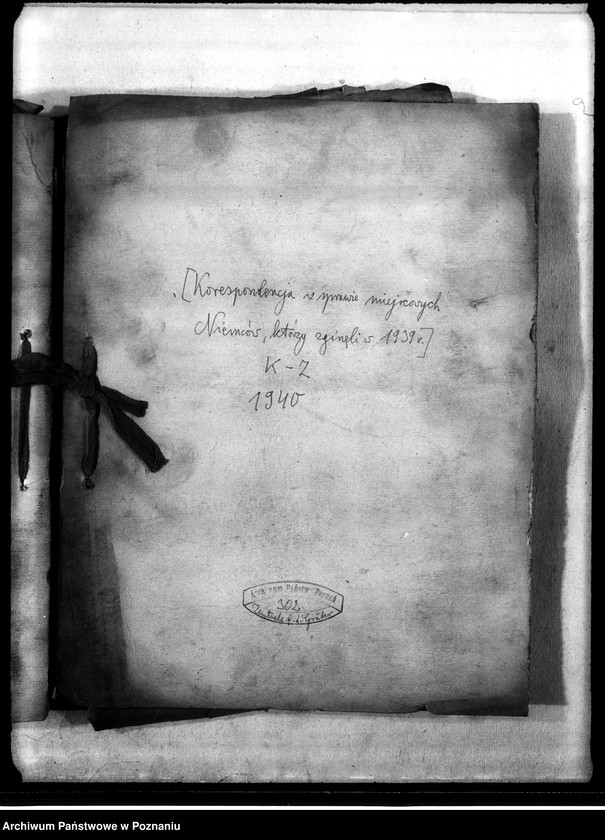 [Korespondencja w sprawie miejscowych
Niemców, którzy zginęli w 1939 r.]
K-Z
1940
Archiwum Państw. Poznań
302
Zentrale f. d. Gräber
Archiwum Państwowe w Poznaniu